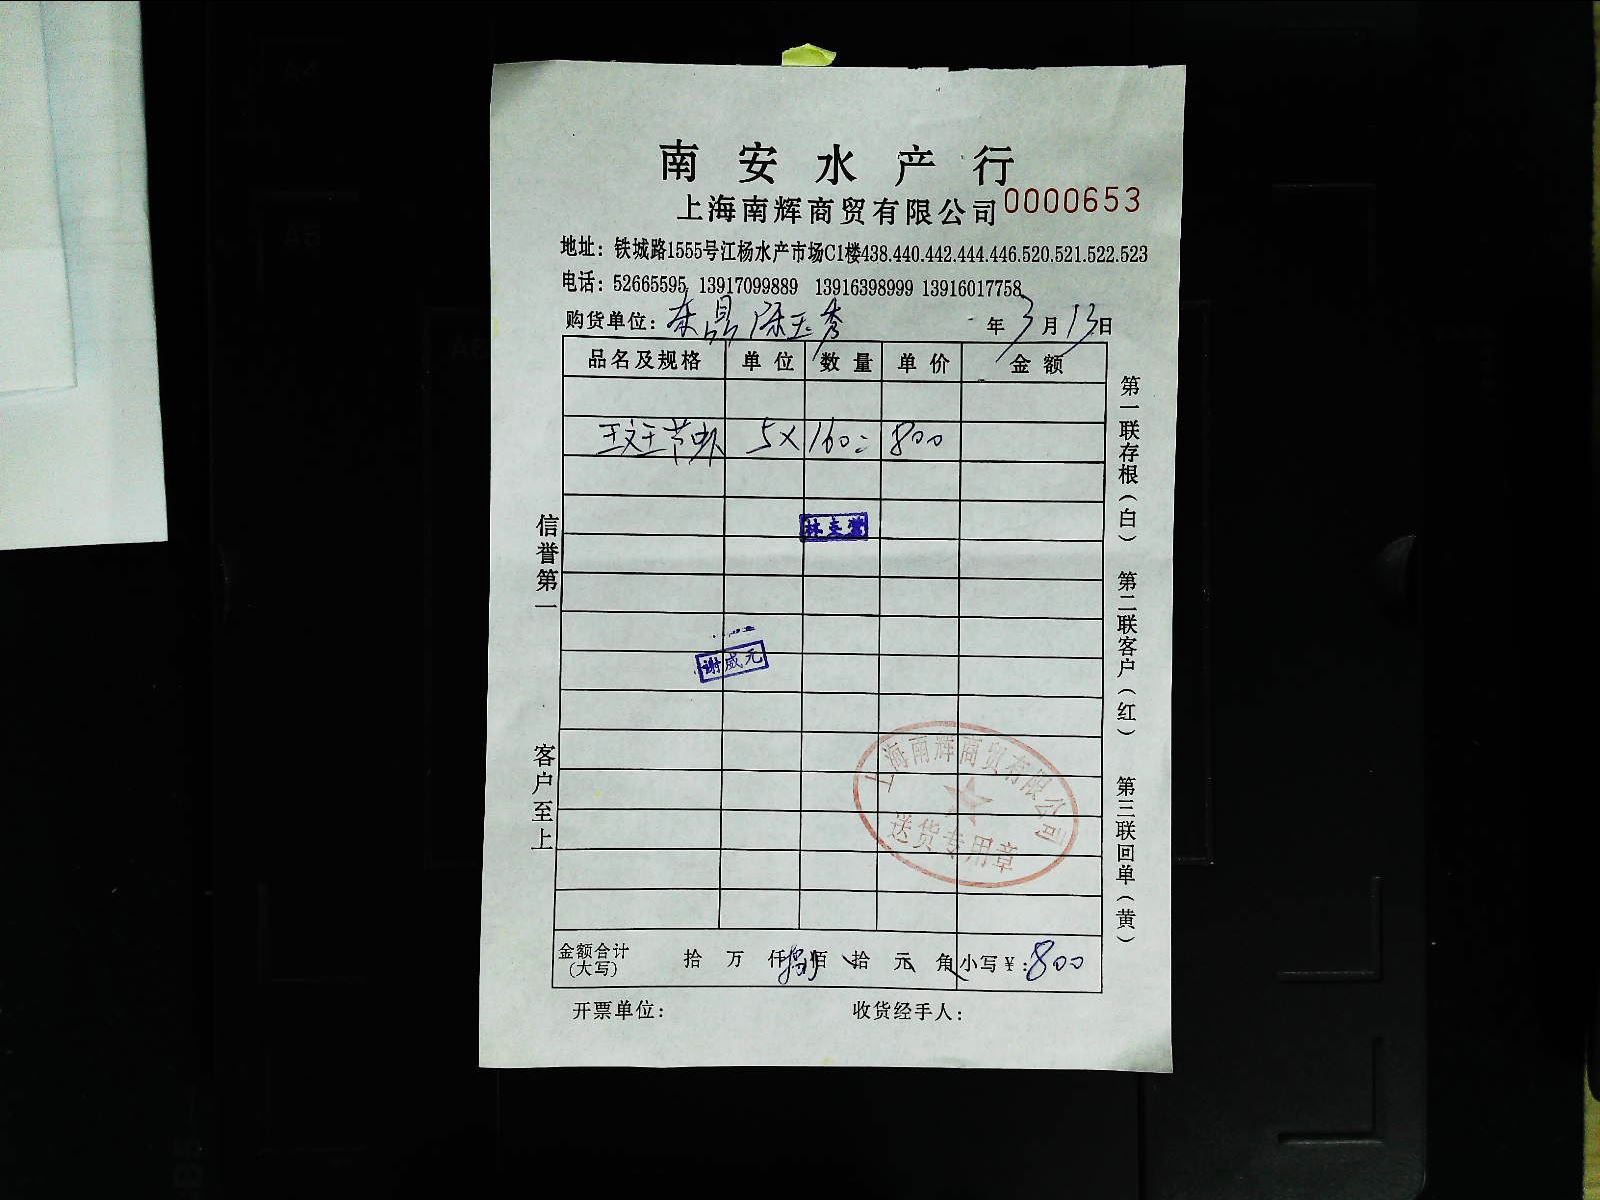 南安水产行
上海南辉商贸有限公司 0000653
地址：铁城路1555号江杨水产市场C1楼438.440.442.444.446.520.521.522.523
电话：52665595 13917099889 13916398999 13916017758
购货单位： 年 3 月 13 日
品名及规格 单位 数量 单价 金额
节虾 5× 160= 800
谢威元
上海南辉商贸有限公司
送货专用章
金额合计（大写） 拾 万 仟 捌 佰 拾 元 角 小写￥：800
开票单位： 收货经手人：
信誉第一
客户至上
第一联存根（白）
第二联客户（红）
第三联回单（黄）